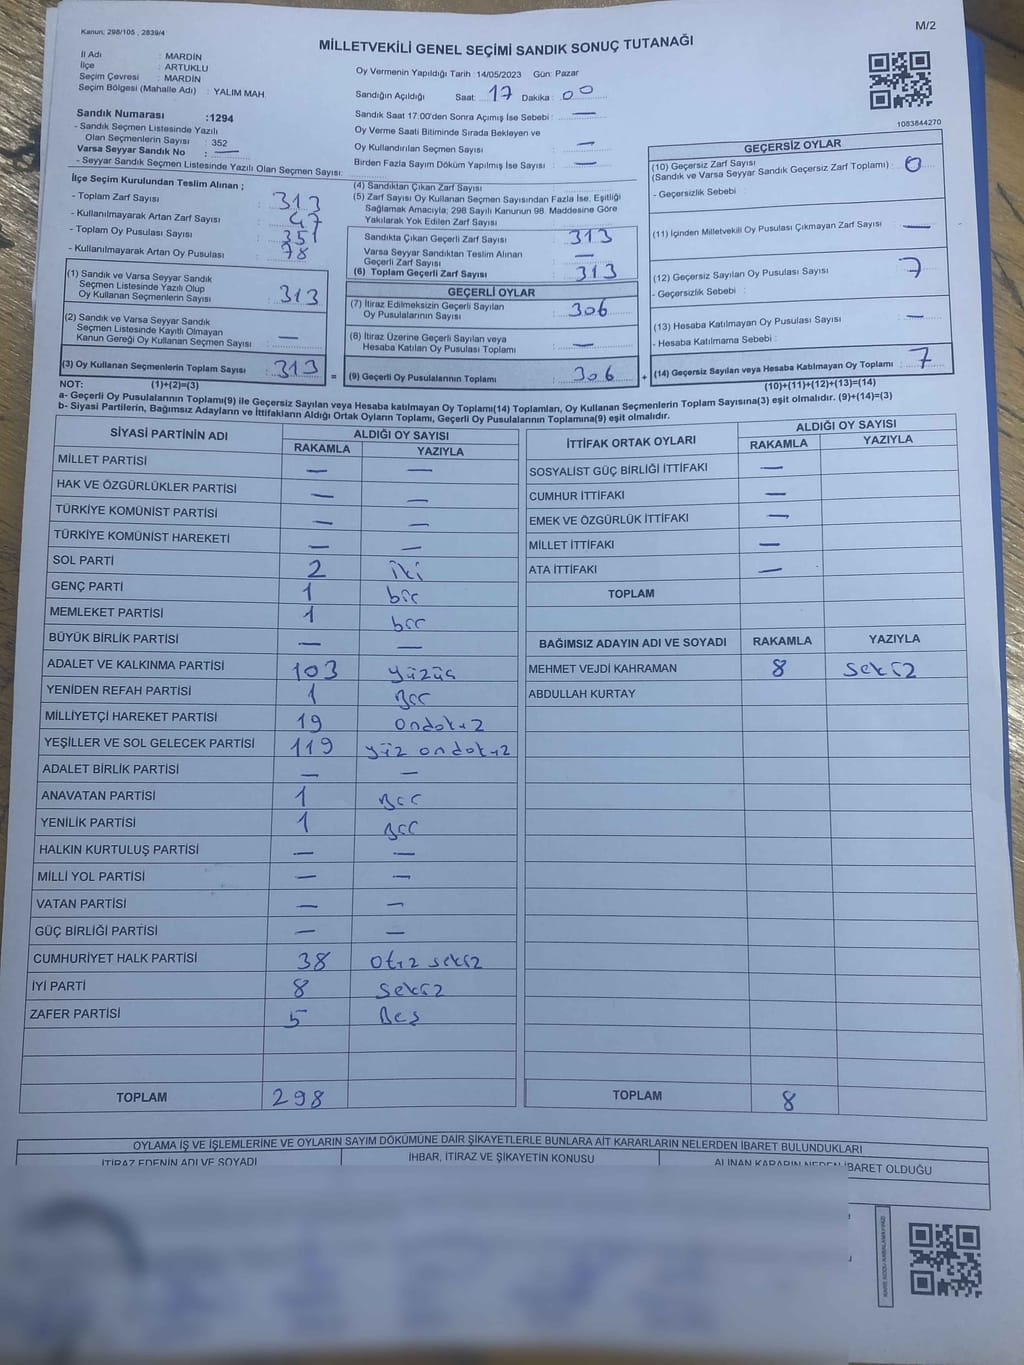 Kanun: 298/105 , 2839/4
M/2
MİLLETVEKİLİ GENEL SEÇİMİ SANDIK SONUÇ TUTANAĞI
İl Adı : MARDİN
İlçe : ARTUKLU
Seçim Çevresi : MARDİN
Seçim Bölgesi (Mahalle Adı) : YALIM MAH.
Oy Vermenin Yapıldığı Tarih : 14/05/2023 Gün: Pazar
Sandığın Açıldığı Saat: 17 Dakika: 00
Sandık Numarası :1294
- Sandık Seçmen Listesinde Yazılı
Olan Seçmenlerin Sayısı : 352
Varsa Seyyar Sandık No : —
- Seyyar Sandık Seçmen Listesinde Yazılı Olan Seçmen Sayısı:
Sandık Saat 17.00'den Sonra Açımış İse Sebebi : —
Oy Verme Saati Bitiminde Sırada Bekleyen ve
Oy Kullandırılan Seçmen Sayısı : —
Birden Fazla Sayım Döküm Yapılmış İse Sayısı : —
1083844270
İlçe Seçim Kurulundan Teslim Alınan ;
- Toplam Zarf Sayısı : 313
- Kullanılmayarak Artan Zarf Sayısı : 47
- Toplam Oy Pusulası Sayısı : 351
- Kullanılmayarak Artan Oy Pusulası : 78
(1) Sandık ve Varsa Seyyar Sandık
Seçmen Listesinde Yazılı Olup
Oy Kullanan Seçmenlerin Sayısı : 313
(2) Sandık ve Varsa Seyyar Sandık
Seçmen Listesinde Kayıtlı Olmayan
Kanun Gereği Oy Kullanan Seçmen Sayısı : —
(3) Oy Kullanan Seçmenlerin Toplam Sayısı : 313
(4) Sandıktan Çıkan Zarf Sayısı :
(5) Zarf Sayısı Oy Kullanan Seçmen Sayısından Fazla İse, Eşitliği
Sağlamak Amacıyla; 298 Sayılı Kanunun 98. Maddesine Göre
Yakılarak Yok Edilen Zarf Sayısı :
Sandıkta Çıkan Geçerli Zarf Sayısı : 313
Varsa Seyyar Sandıktan Teslim Alınan
Geçerli Zarf Sayısı : —
(6) Toplam Geçerli Zarf Sayısı : 313
GEÇERLİ OYLAR
(7) İtiraz Edilmeksizin Geçerli Sayılan
Oy Pusulalarının Sayısı : 306
(8) İtiraz Üzerine Geçerli Sayılan veya
Hesaba Katılan Oy Pusulası Toplamı : —
= (9) Geçerli Oy Pusulalarının Toplamı : 306
GEÇERSİZ OYLAR
(10) Geçersiz Zarf Sayısı
(Sandık ve Varsa Seyyar Sandık Geçersiz Zarf Toplamı) : 0
- Geçersizlik Sebebi :
(11) İçinden Milletvekili Oy Pusulası Çıkmayan Zarf Sayısı : —
(12) Geçersiz Sayılan Oy Pusulası Sayısı : 7
- Geçersizlik Sebebi :
(13) Hesaba Katılmayan Oy Pusulası Sayısı : —
- Hesaba Katılmama Sebebi :
+ (14) Geçersiz Sayılan veya Hesaba Katılmayan Oy Toplamı : 7
NOT: (1)+(2)=(3)
(10)+(11)+(12)+(13)=(14)
a- Geçerli Oy Pusulalarının Toplamı(9) ile Geçersiz Sayılan veya Hesaba katılmayan Oy Toplamı(14) Toplamları, Oy Kullanan Seçmenlerin Toplam Sayısına(3) eşit olmalıdır. (9)+(14)=(3)
b- Siyasi Partilerin, Bağımsız Adayların ve İttifakların Aldığı Ortak Oyların Toplamı, Geçerli Oy Pusulalarının Toplamına(9) eşit olmalıdır.
SİYASİ PARTİNİN ADI ALDIĞI OY SAYISI
RAKAMLA YAZIYLA
MİLLET PARTİSİ — —
HAK VE ÖZGÜRLÜKLER PARTİSİ — —
TÜRKİYE KOMÜNİST PARTİSİ — —
TÜRKİYE KOMÜNİST HAREKETİ — —
SOL PARTİ 2 iki
GENÇ PARTİ 1 bir
MEMLEKET PARTİSİ 1 bir
BÜYÜK BİRLİK PARTİSİ — —
ADALET VE KALKINMA PARTİSİ 103 yüzüç
YENİDEN REFAH PARTİSİ 1 Bir
MİLLİYETÇİ HAREKET PARTİSİ 19 ondokuz
YEŞİLLER VE SOL GELECEK PARTİSİ 119 yüz ondokuz
ADALET BİRLİK PARTİSİ — —
ANAVATAN PARTİSİ 1 Bir
YENİLİK PARTİSİ 1 Bir
HALKIN KURTULUŞ PARTİSİ — —
MİLLİ YOL PARTİSİ — —
VATAN PARTİSİ — —
GÜÇ BİRLİĞİ PARTİSİ — —
CUMHURİYET HALK PARTİSİ 38 Otuz sekiz
İYİ PARTİ 8 Sekiz
ZAFER PARTİSİ 5 Beş
TOPLAM 298
İTTİFAK ORTAK OYLARI ALDIĞI OY SAYISI
RAKAMLA YAZIYLA
SOSYALİST GÜÇ BİRLİĞİ İTTİFAKI —
CUMHUR İTTİFAKI —
EMEK VE ÖZGÜRLÜK İTTİFAKI —
MİLLET İTTİFAKI —
ATA İTTİFAKI —
TOPLAM
BAĞIMSIZ ADAYIN ADI VE SOYADI RAKAMLA YAZIYLA
MEHMET VEJDİ KAHRAMAN 8 Sekiz
ABDULLAH KURTAY
TOPLAM 8
OYLAMA İŞ VE İŞLEMLERİNE VE OYLARIN SAYIM DÖKÜMÜNE DAİR ŞİKAYETLERLE BUNLARA AİT KARARLARIN NELERDEN İBARET BULUNDUKLARI
İTİRAZ EDENİN ADI VE SOYADI İHBAR, İTİRAZ VE ŞİKAYETİN KONUSU ALINAN KARARIN NEDEN İBARET OLDUĞU